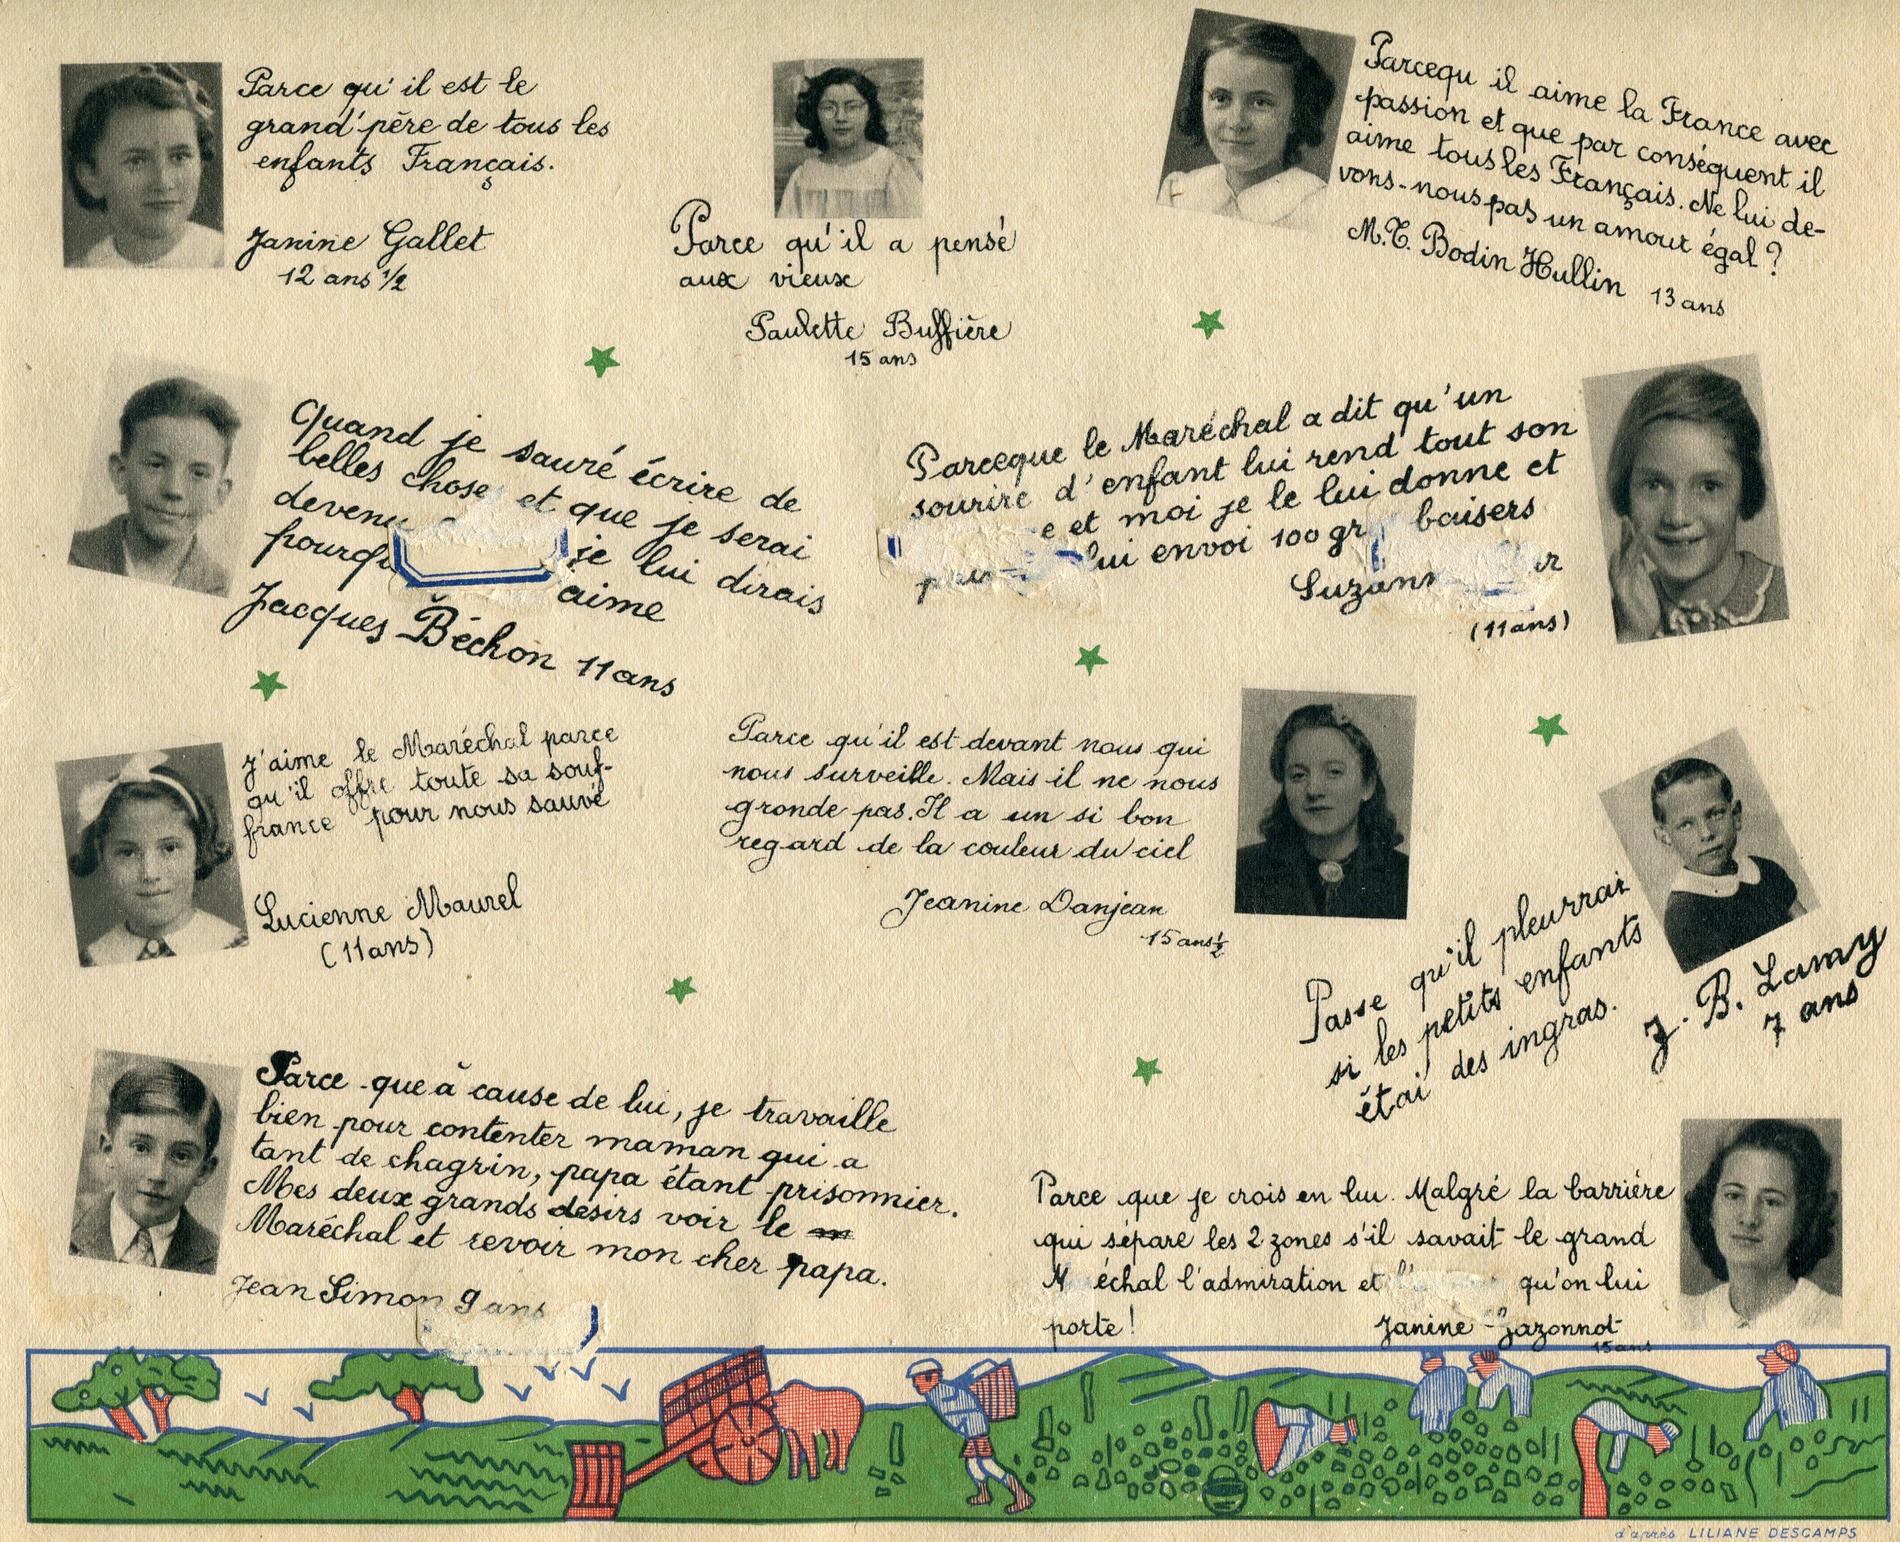 Parce qu'il est le
grand'père de tous les
enfants Français.
Janine Gallet
12 ans 1/2
Parce qu'il a pensé
aux vieux
Paulette Buffière
15 ans
Parcequ il aime la France avec
passion et que par conséquent il
aime tous les Français. Ne lui de-
vons-nous pas un amour égal ?
M.T. Bodin Hullin 13 ans
Quand je sauré écrire de
belles chose et que je serai
devenu je lui dirais
pourquoi aime
Jacques Béchon 11 ans
Parceque le Maréchal a dit qu'un
sourire d'enfant lui rend tout son
e et moi je le lui donne et
lui envoi 100 gr baisers
Suzann er
(11 ans)
J'aime le Maréchal parce
qu'il offre toute sa souf-
france pour nous sauvé
Lucienne Maurel
(11 ans)
Parce qu'il est devant nous qui
nous surveille. Mais il ne nous
gronde pas. Il a un si bon
regard de la couleur du ciel
Jeanine Danjean
15 ans 1/2
Passe qu'il pleurrai
si les petits enfants
étai des ingras.
J. B. Lamy
7 ans
Parce que à cause de lui, je travaille
bien pour contenter maman qui a
tant de chagrin, papa étant prisonnier.
Mes deux grands désirs voir le
Maréchal et revoir mon cher papa.
Jean Simon 9 ans
Parce que je crois en lui. Malgré la barrière
qui sépare les 2 zones s'il savait le grand
M échal l'admiration et qu'on lui
porte !
Janine Jazonnot
15 ans
d'après LILIANE DESCAMPS